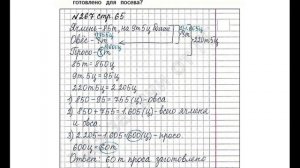 готовлено для посева?
№267 стр. 65
Ячмень - 85т, на 9т5ц более
Овёс - ?т
Просо - ?т
220т5ц
85т = 850ц
9т 5ц = 95ц
220т5ц = 2.205ц
1) 850 - 95 = 755 (ц) - овса.
2) 850 + 755 = 1.605 (ц) - всего ячменя
и овса.
3) 2.205 - 1.605 = 600 (ц) - просо.
600ц = 60т
Ответ: 60т проса заготовлено